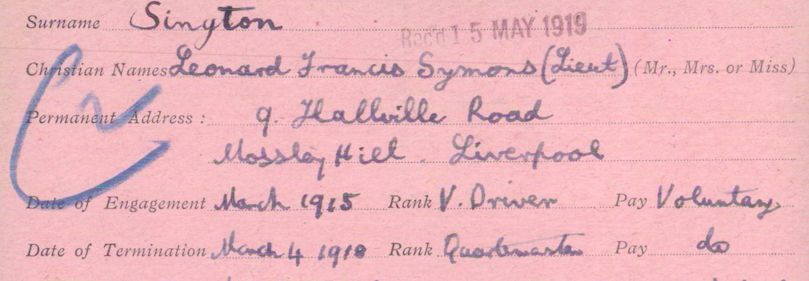 Surname Sington
Rec'd 15 MAY 1919
Christian Names Leonard Francis Symons (Lieut) (Mr., Mrs. or Miss)
Permanent Address: 9. Hallville Road
Mossley Hill. Liverpool
Date of Engagement March 1915 Rank V. Driver Pay Voluntary
Date of Termination March 4 1918 Rank Quartermaster Pay do